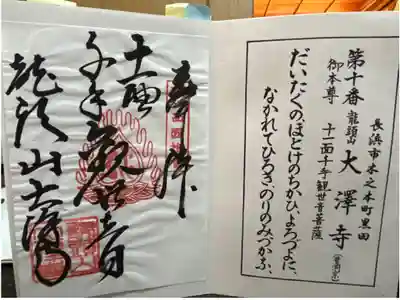 長浜市木之本町黒田
第十番 龍頭山 大澤寺
御本尊 十一面千手観世音菩薩
だいたくのほとけのちかひ、よろづよに、
なかれてひろき、のりのみづかふ、
奉拝
十一面
千手観世音
龍頭山大澤寺